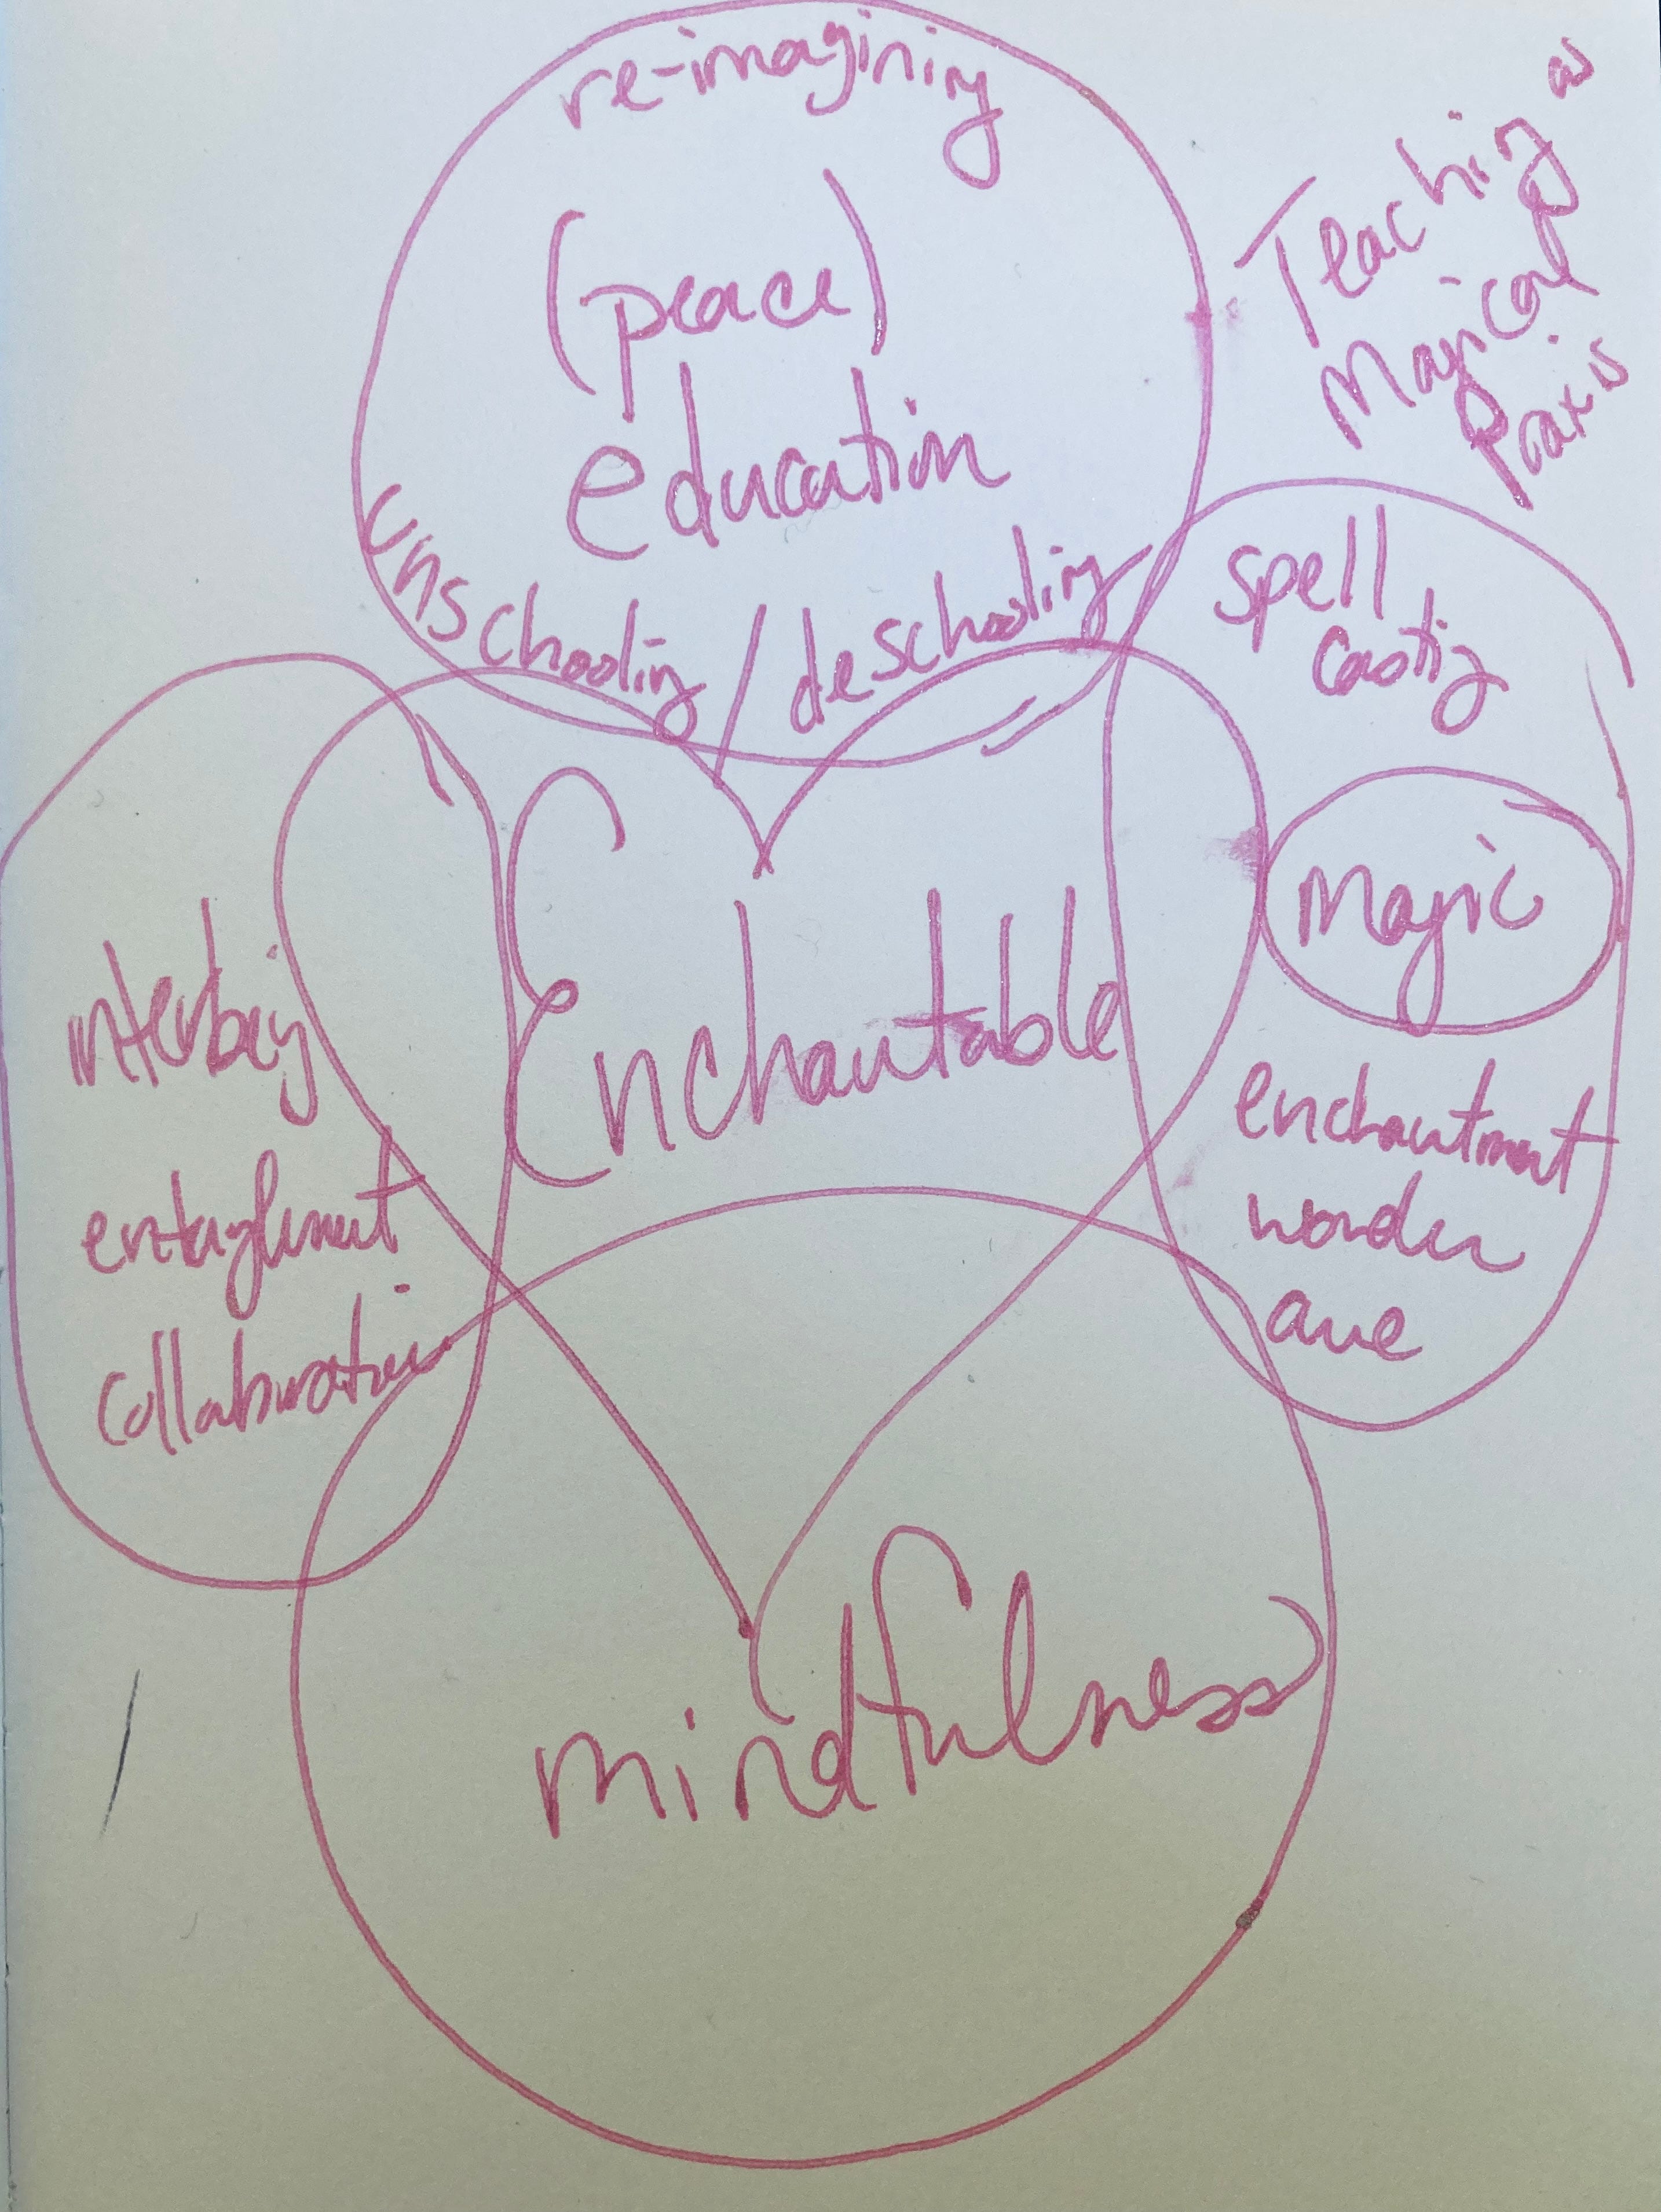 re-imagining
(peace)
education
unschooling / deschooling
Teaching as
Magical
Praxis
spell
casting
Magic
enchantment
wonder
awe
Enchantable
interbeing
entanglement
collaboration
mindfulness